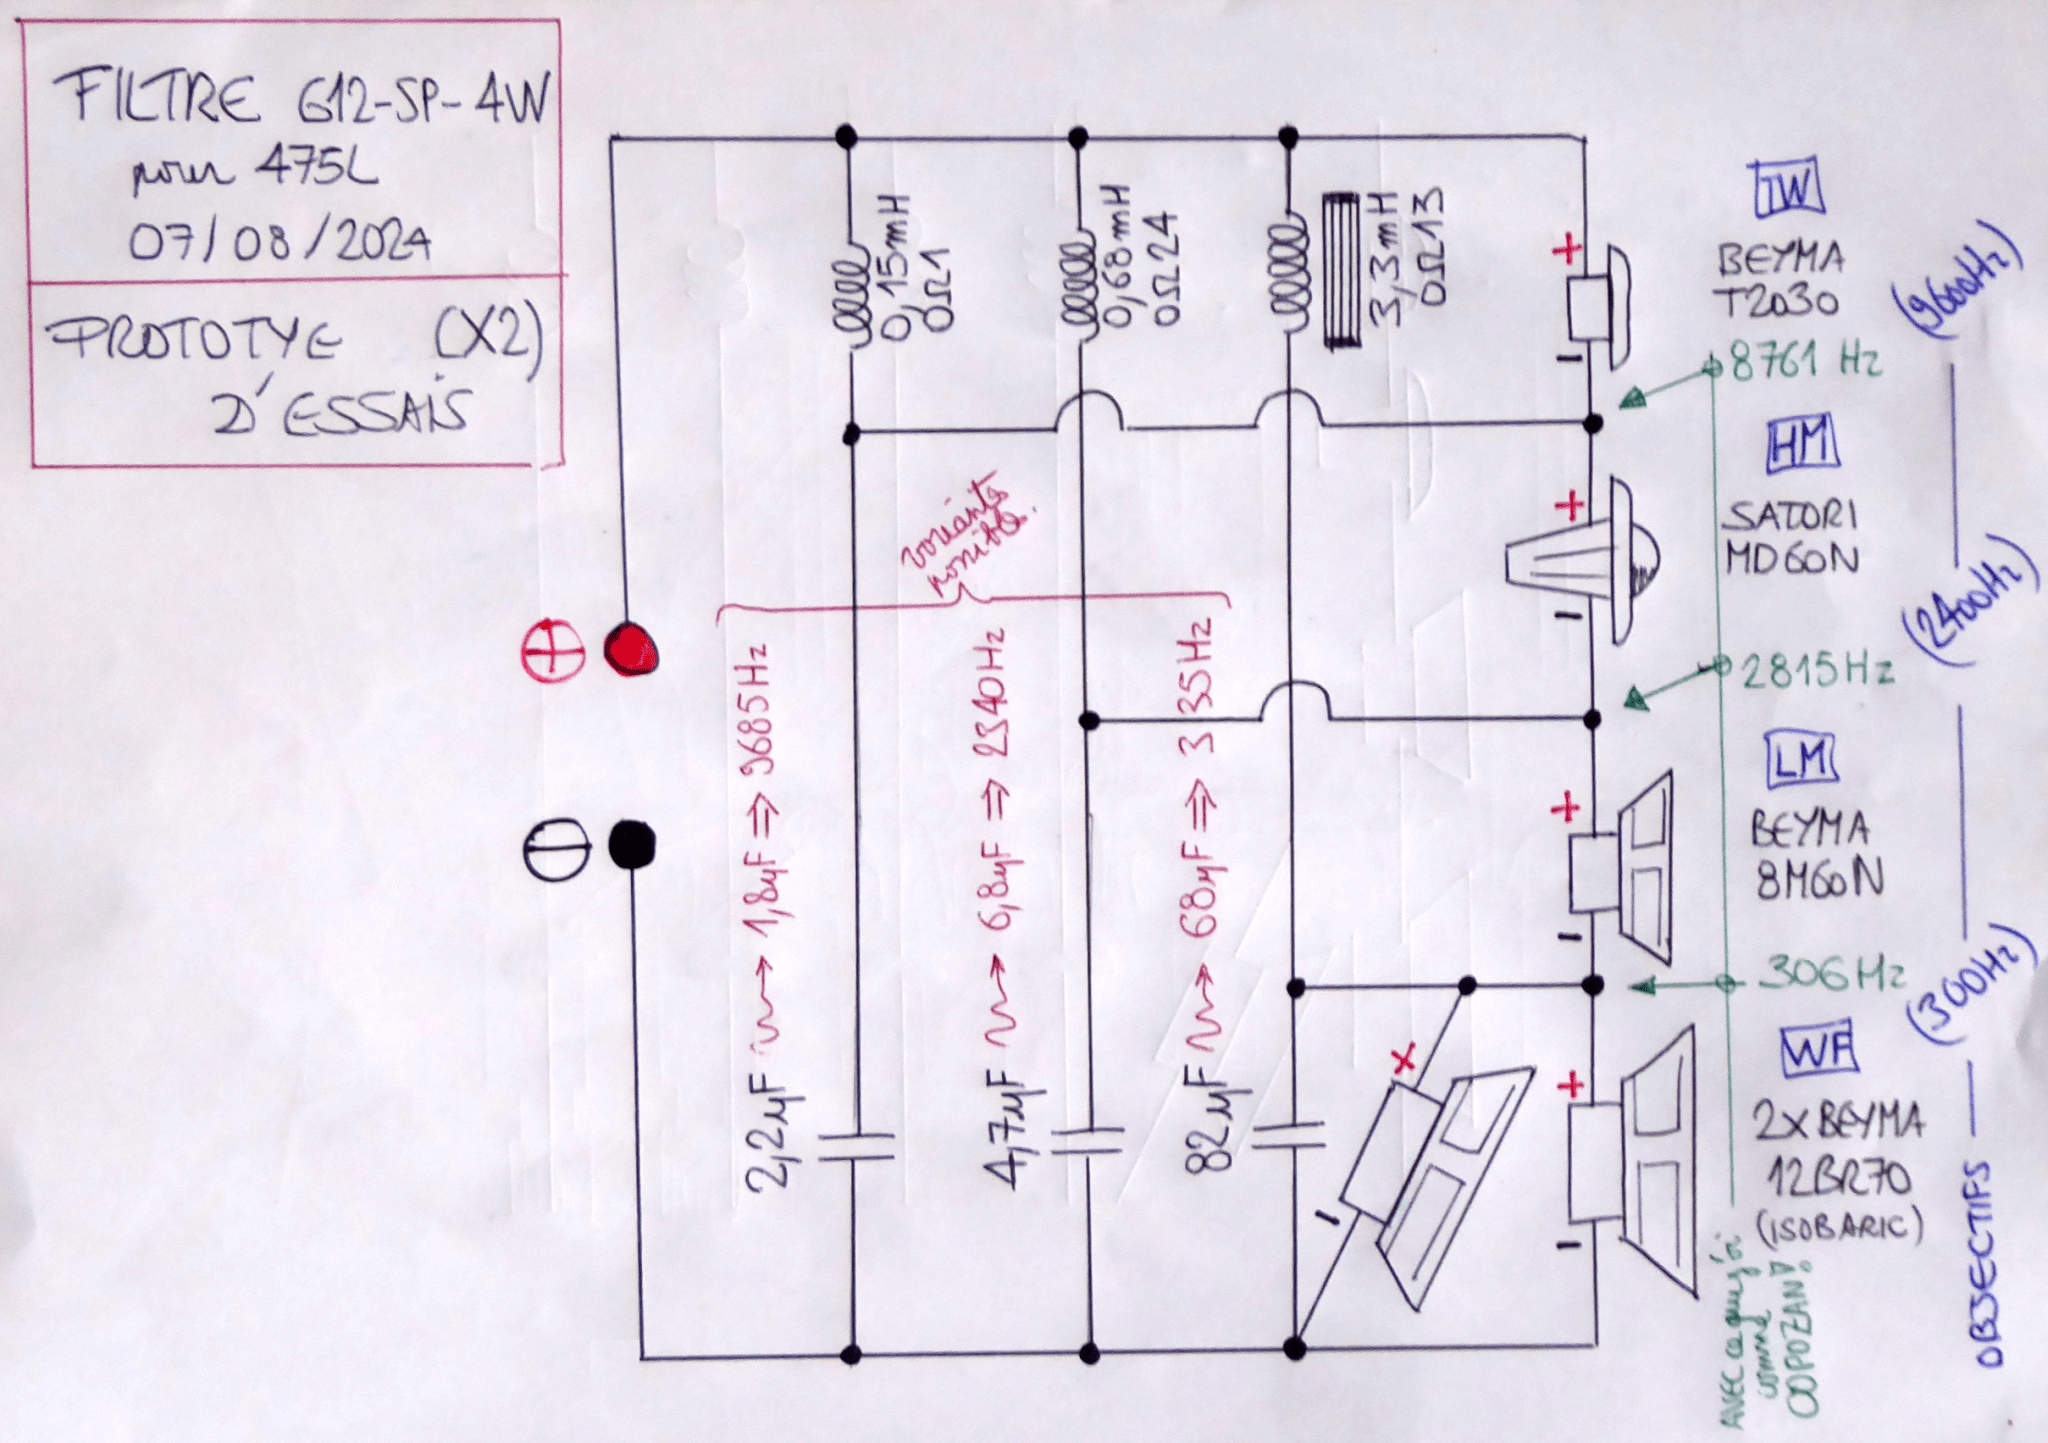 FILTRE G12-SP-4W
pour 475L
07/08/2024
PROTOTYE (X2)
D'ESSAIS
0,15mH
0Ω1
0,68mH
0Ω24
3,3mH
0Ω13
variante
possible.
2,2µF → 1,8µF ⇒ 9685Hz
4,7µF → 6,8µF ⇒ 2340Hz
82µF → 68µF ⇒ 335Hz
+
-
+
-
+
-
+
-
+
-
+
-
TW
BEYMA
T2030
8761 Hz
HM
SATORI
MD60N
2815Hz
LM
BEYMA
8M60N
306Hz
WF
2x BEYMA
12BR70
(ISOBARIC)
AVEC ce que j'ai
comme
COPOZANT
OBJECTIFS — (300Hz) — (2400Hz) — (9600Hz)